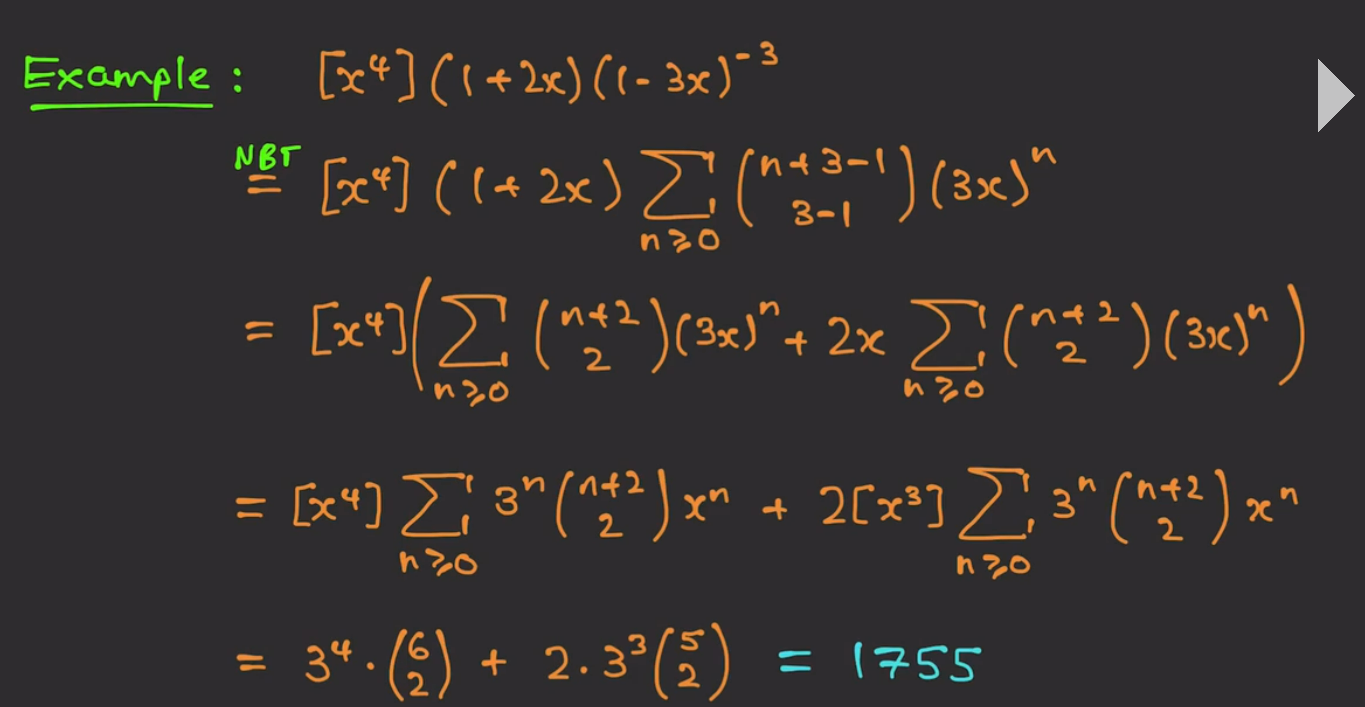 Example: [x⁴](1+2x)(1-3x)⁻³
NBT
= [x⁴](1+2x) ∑_{n≥0} \binom{n+3-1}{3-1} (3x)ⁿ
= [x⁴](∑_{n≥0} \binom{n+2}{2} (3x)ⁿ + 2x ∑_{n≥0} \binom{n+2}{2} (3x)ⁿ)
= [x⁴] ∑_{n≥0} 3ⁿ \binom{n+2}{2} xⁿ + 2[x³] ∑_{n≥0} 3ⁿ \binom{n+2}{2} xⁿ
= 3⁴ · \binom{6}{2} + 2 · 3³ \binom{5}{2} = 1755